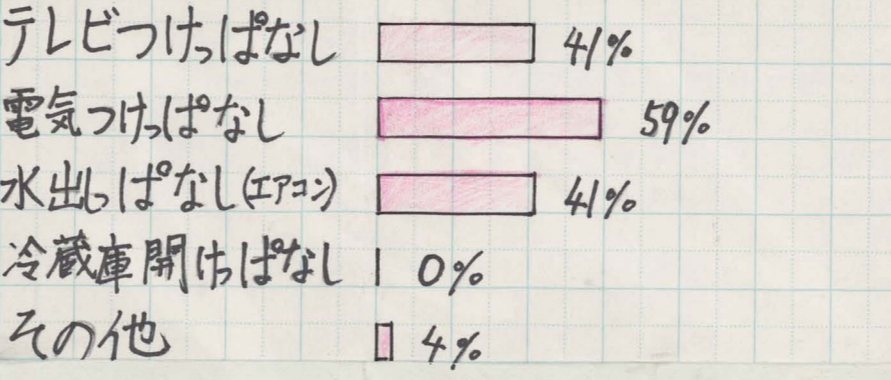 テレビつけっぱなし 41%
電気つけっぱなし 59%
水出しっぱなし(エアコン) 41%
冷蔵庫開けっぱなし 0%
その他 4%